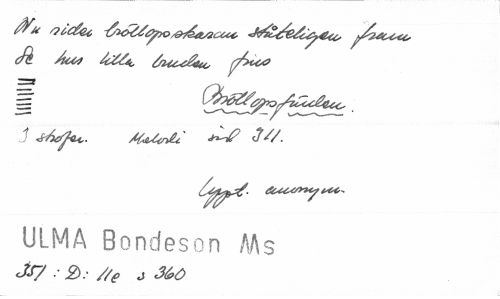 Nu rider bröllopsskaran ståteligen fram
Se hur lilla bruden fins
Bröllopsfärden.
3 strofer. Melodi sid 311.
Uppt. anonym.
ULMA Bondeson Ms
351 : D: 11e s 360